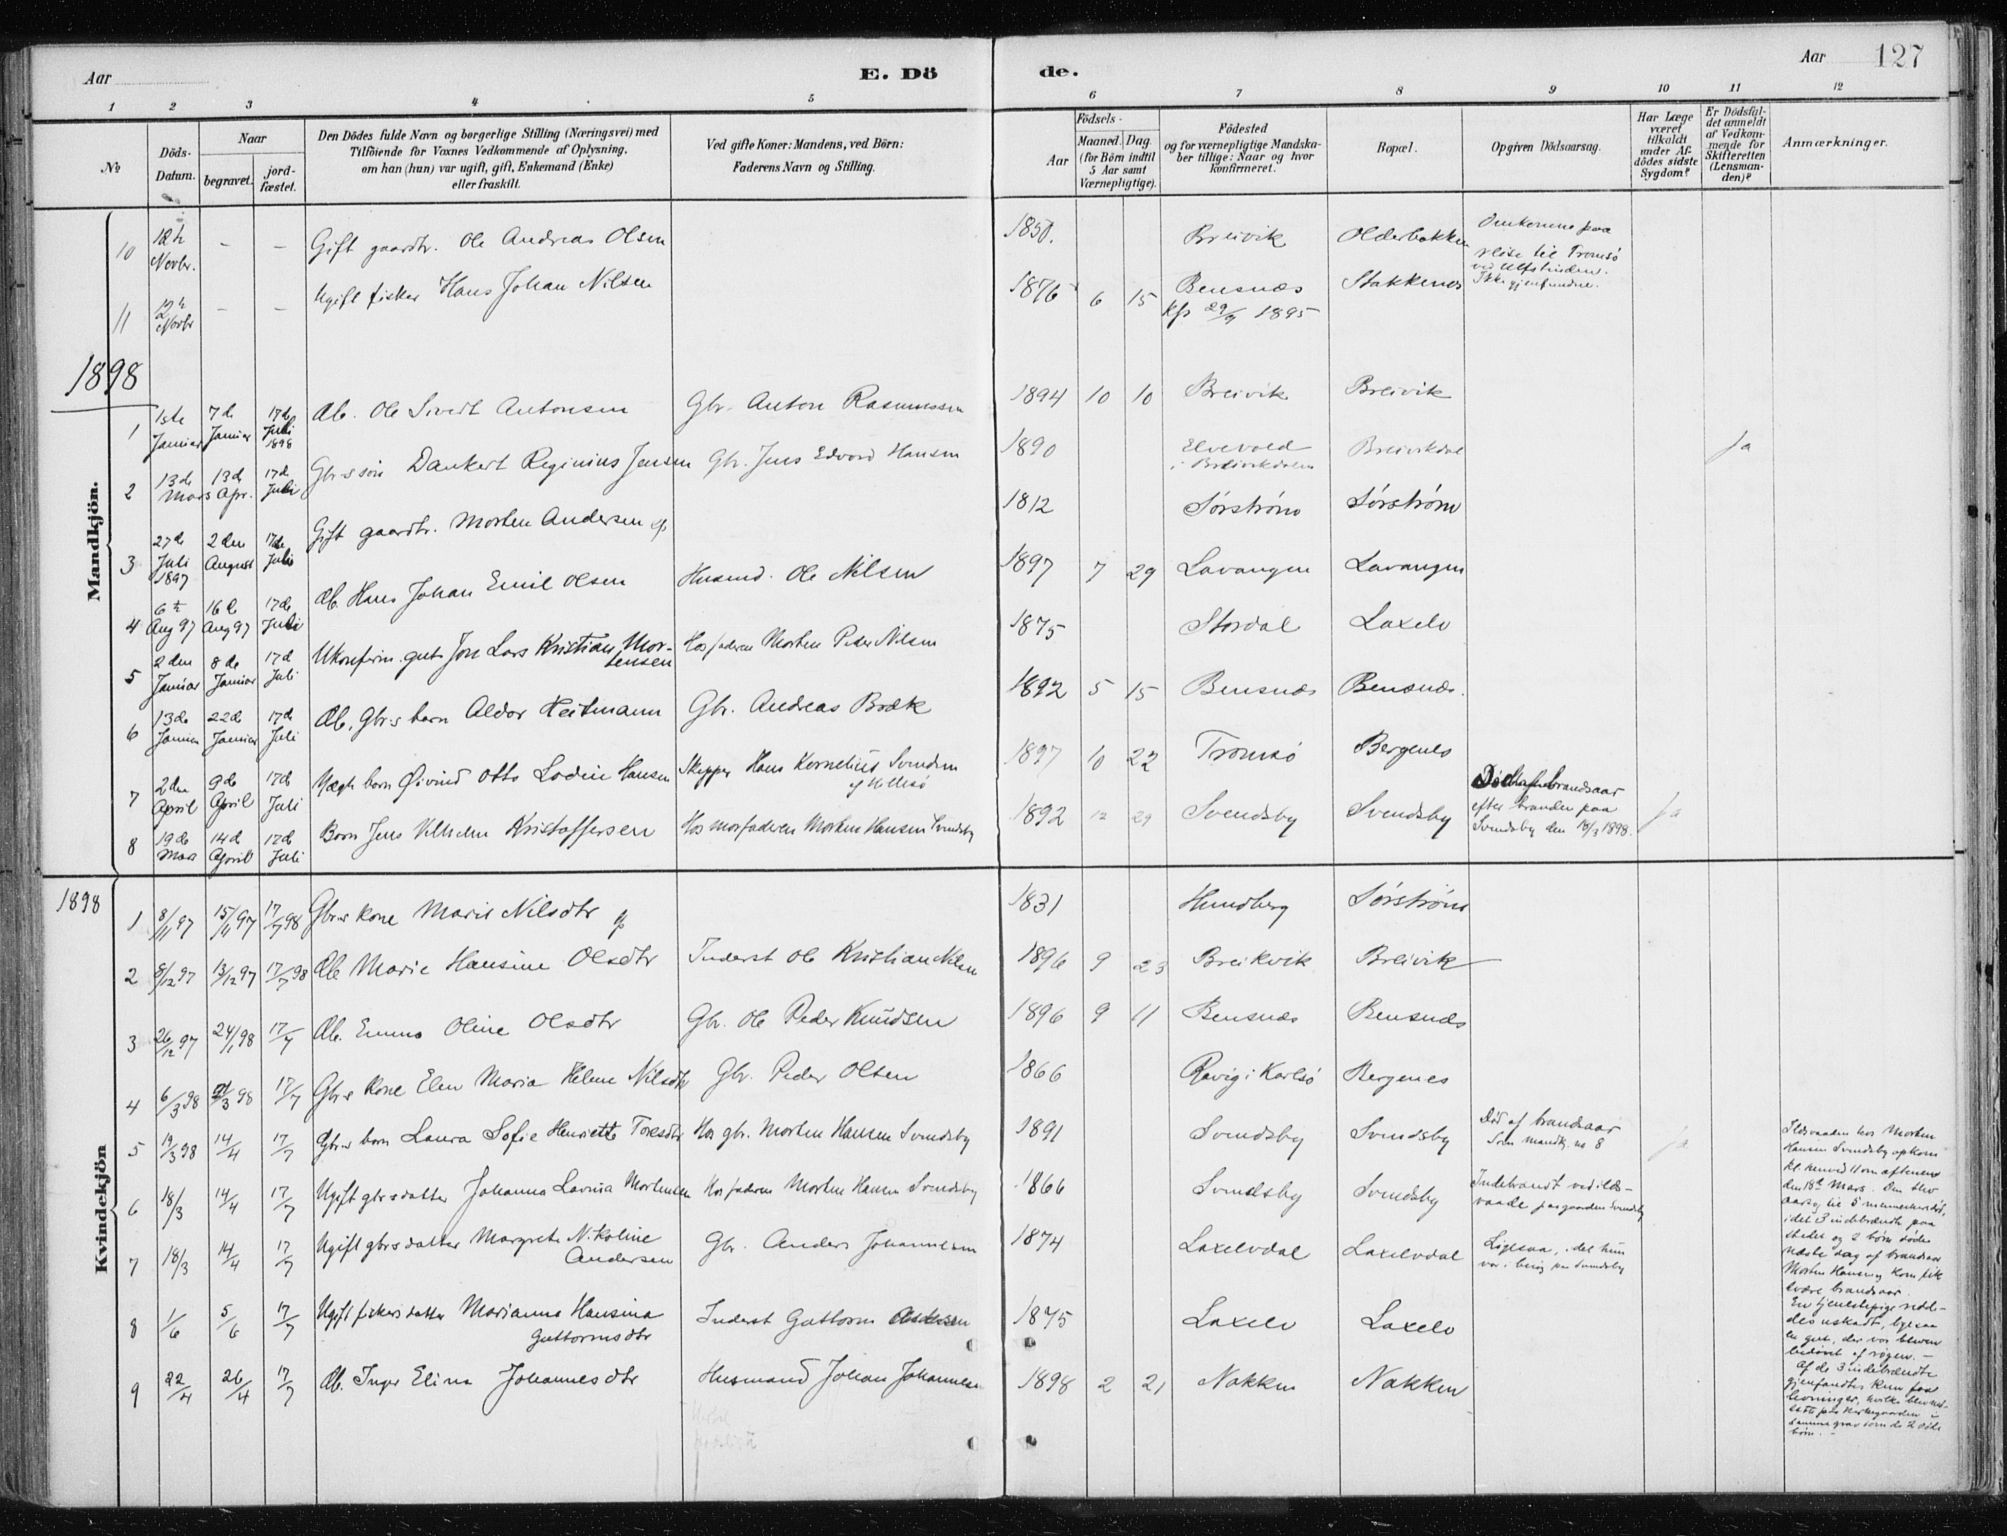 Aar
E. Dö
de.
Aar
127
1 2 3 4 5 6 7 8 9 10 11 12
No
Döds-Datum.
Naar
begravet.
jord-fæstet.
Den Dödes fulde Navn og borgerlige Stilling (Næringsvei) med
Tilföiende for Voxnes Vedkommende af Oplysning,
om han (hun) var ugift, gift, Enkemand (Enke)
eller fraskilt.
Ved gifte Koner: Mandens, ved Börn:
Faderens Navn og Stilling.
Födsels-
Aar
Maaned.
Dag.
(for Börn indtil
5 Aar samt
Værnepligtige).
Födested
og for værnepligtige Mandska-
ber tillige: Naar og hvor
konfirmeret.
Bopæl.
Opgiven Dödsaarsag.
Har Læge
været
tilkaldt
under Af-
dödes sidste
Sygdom?
Er Dödsfal-
det anmeldt
af Vedkom-
mende for
Skifteretten
(Lensman-
den)?
Anmærkninger.
Mandkjön.
10 12te Novbr. - - Gift gaardbr. Ole Andreas Olsen 1850. Breivik Olderbakken Omkomne paa
reise til Tromsö
ved Ulfstinden.
Ikke gjenfundne.
11 12te Novbr - - Ugift fisker Hans Johan Nilsen 1876 6 15 Bensnæs Stakkenes
kfr 29/9 1895
1898
1 1ste Januar 7de Januar 17de Juli 1898 Æb. Ole Sivert Antonsen Gbr. Anton Rasmussen 1894 10 10 Breivik Breivik
2 13de Mars 13de Apr. 17de Juli Gbr.s sön Dankert Reginius Jensen Gbr. Jens Edvard Hansen 1890 Elvevold
i Breivikdalen Breivikdal Ja
3 27de Juli 1897 2den August 17de Juli Gift gaardbr. Morten Andersen 1812 Sörström Sörström
4 6te Aug 97 16de Aug 97 17de Juli Æb. Hans Johan Emil Olsen Husmd. Ole Nilsen 1897 7 29 Lavangen Lavangen
5 2den Januar 8de Januar 17de Juli Ukonfirm. gut Jon Lars Kristian Mor-
tensen Hos faderen Morten Peder Nilsen 1875 Stordal Laxelv
6 13de Januar 22de Januar 17de Juli Æb. Gbr.s barn Aldor Heitmann Gbr. Andreas Bræk 1892 5 15 Bensnæs Bensnæs.
7 2den April 9de April 17de Juli Uægte barn Øivind Otto Lodin Hansen Skipper Hans Kornelius Svendsen
af Hillesö 1897 10 22 Tromsö Bergenes
8 19de Mars 14de April 17de Juli Barn Jens Vilhelm Kristoffersen Hos morfaderen Morten Hansen Svendsby 1892 12 29 Svendsby Svendsby brandsaar
efter branden paa
Svendsby den 18/3 1898. Ja
Kvindekjön
1898
1 8/11 97 15/11 97 17/7 98 Gbr.s kone Marit Nilsdtr 1831 Hundberg Sörström
2 8/12 97 13/12 97 17/7 98 Æb. Marie Hansine Olsdtr Inderst Ole Kristian Nilsen 1896 9 23 Breikvik Breivik
3 26/12 97 24/1 98 17/7 Æb. Emma Oline Olsdtr Gbr. Ole Peder Knudsen 1896 9 11 Bensnæs Bensnæs
4 6/3 98 /3 98 17/7 Gbr.s kone Elen Maria Helene Nilsdtr Gbr. Peder Olsen 1866 i Karlsö Bergenes
5 19/3 98 14/4 17/7 Gbr.s barn Laura Sofie Henriette Toresdtr Hos gbr. Morten Hansen Svendsby 1891 Svendsby Svendsby Död af brandsaar
Som mandkj. no 8 ja
6 18/3 14/4 17/7 Ugift gbrs datter Johanna Lavina Mortensen Hos faderen Morten Hansen Svendsby 1866 Svendsby Svendsby Indebrændt ved ilds-
vaade paa gaarden Svendsby
7 18/3 14/4 17/7 Ugift gbrs datter Margrete Nikoline
Andersen Gbr. Anders Johannesen 1874 Laxelvdal Laxelvdal Ligesaa, idet hun
var i besög paa Svendsby
8 1/6 5/6 17/7 Ugift fiskers datter Marianna Hansina
Guttormsdtr Inderst Guttorm 1875 Laxelv Laxelv
9 22/4 26/4 17/7 Æb. Inger Elina Johannesdtr Husmand Johan Johannesen 1898 2 21 Nakken Nakken
Ildsvaaden hos Morten
Hansen Svendsby opkom
kl. henved 11 om aftenen
den 18de Mars. Den blev
aarsag til 5 menneskers död,
idet 3 indebrændte paa
stedet og 2 börn döde
næste dag af brandsaar
Morten Hansen og kone fik
svære brandsaar.
En tjenestepige redde-
des uskadt, ligesaa
en gut, der var bleven
bedövet af rögen. -
Af de 3 indebrændte
gjenfandtes kun faa
levninger, hvilke blev ned-
satte paa kirkegaarden i
samme grav som de 2 döde
börn. -